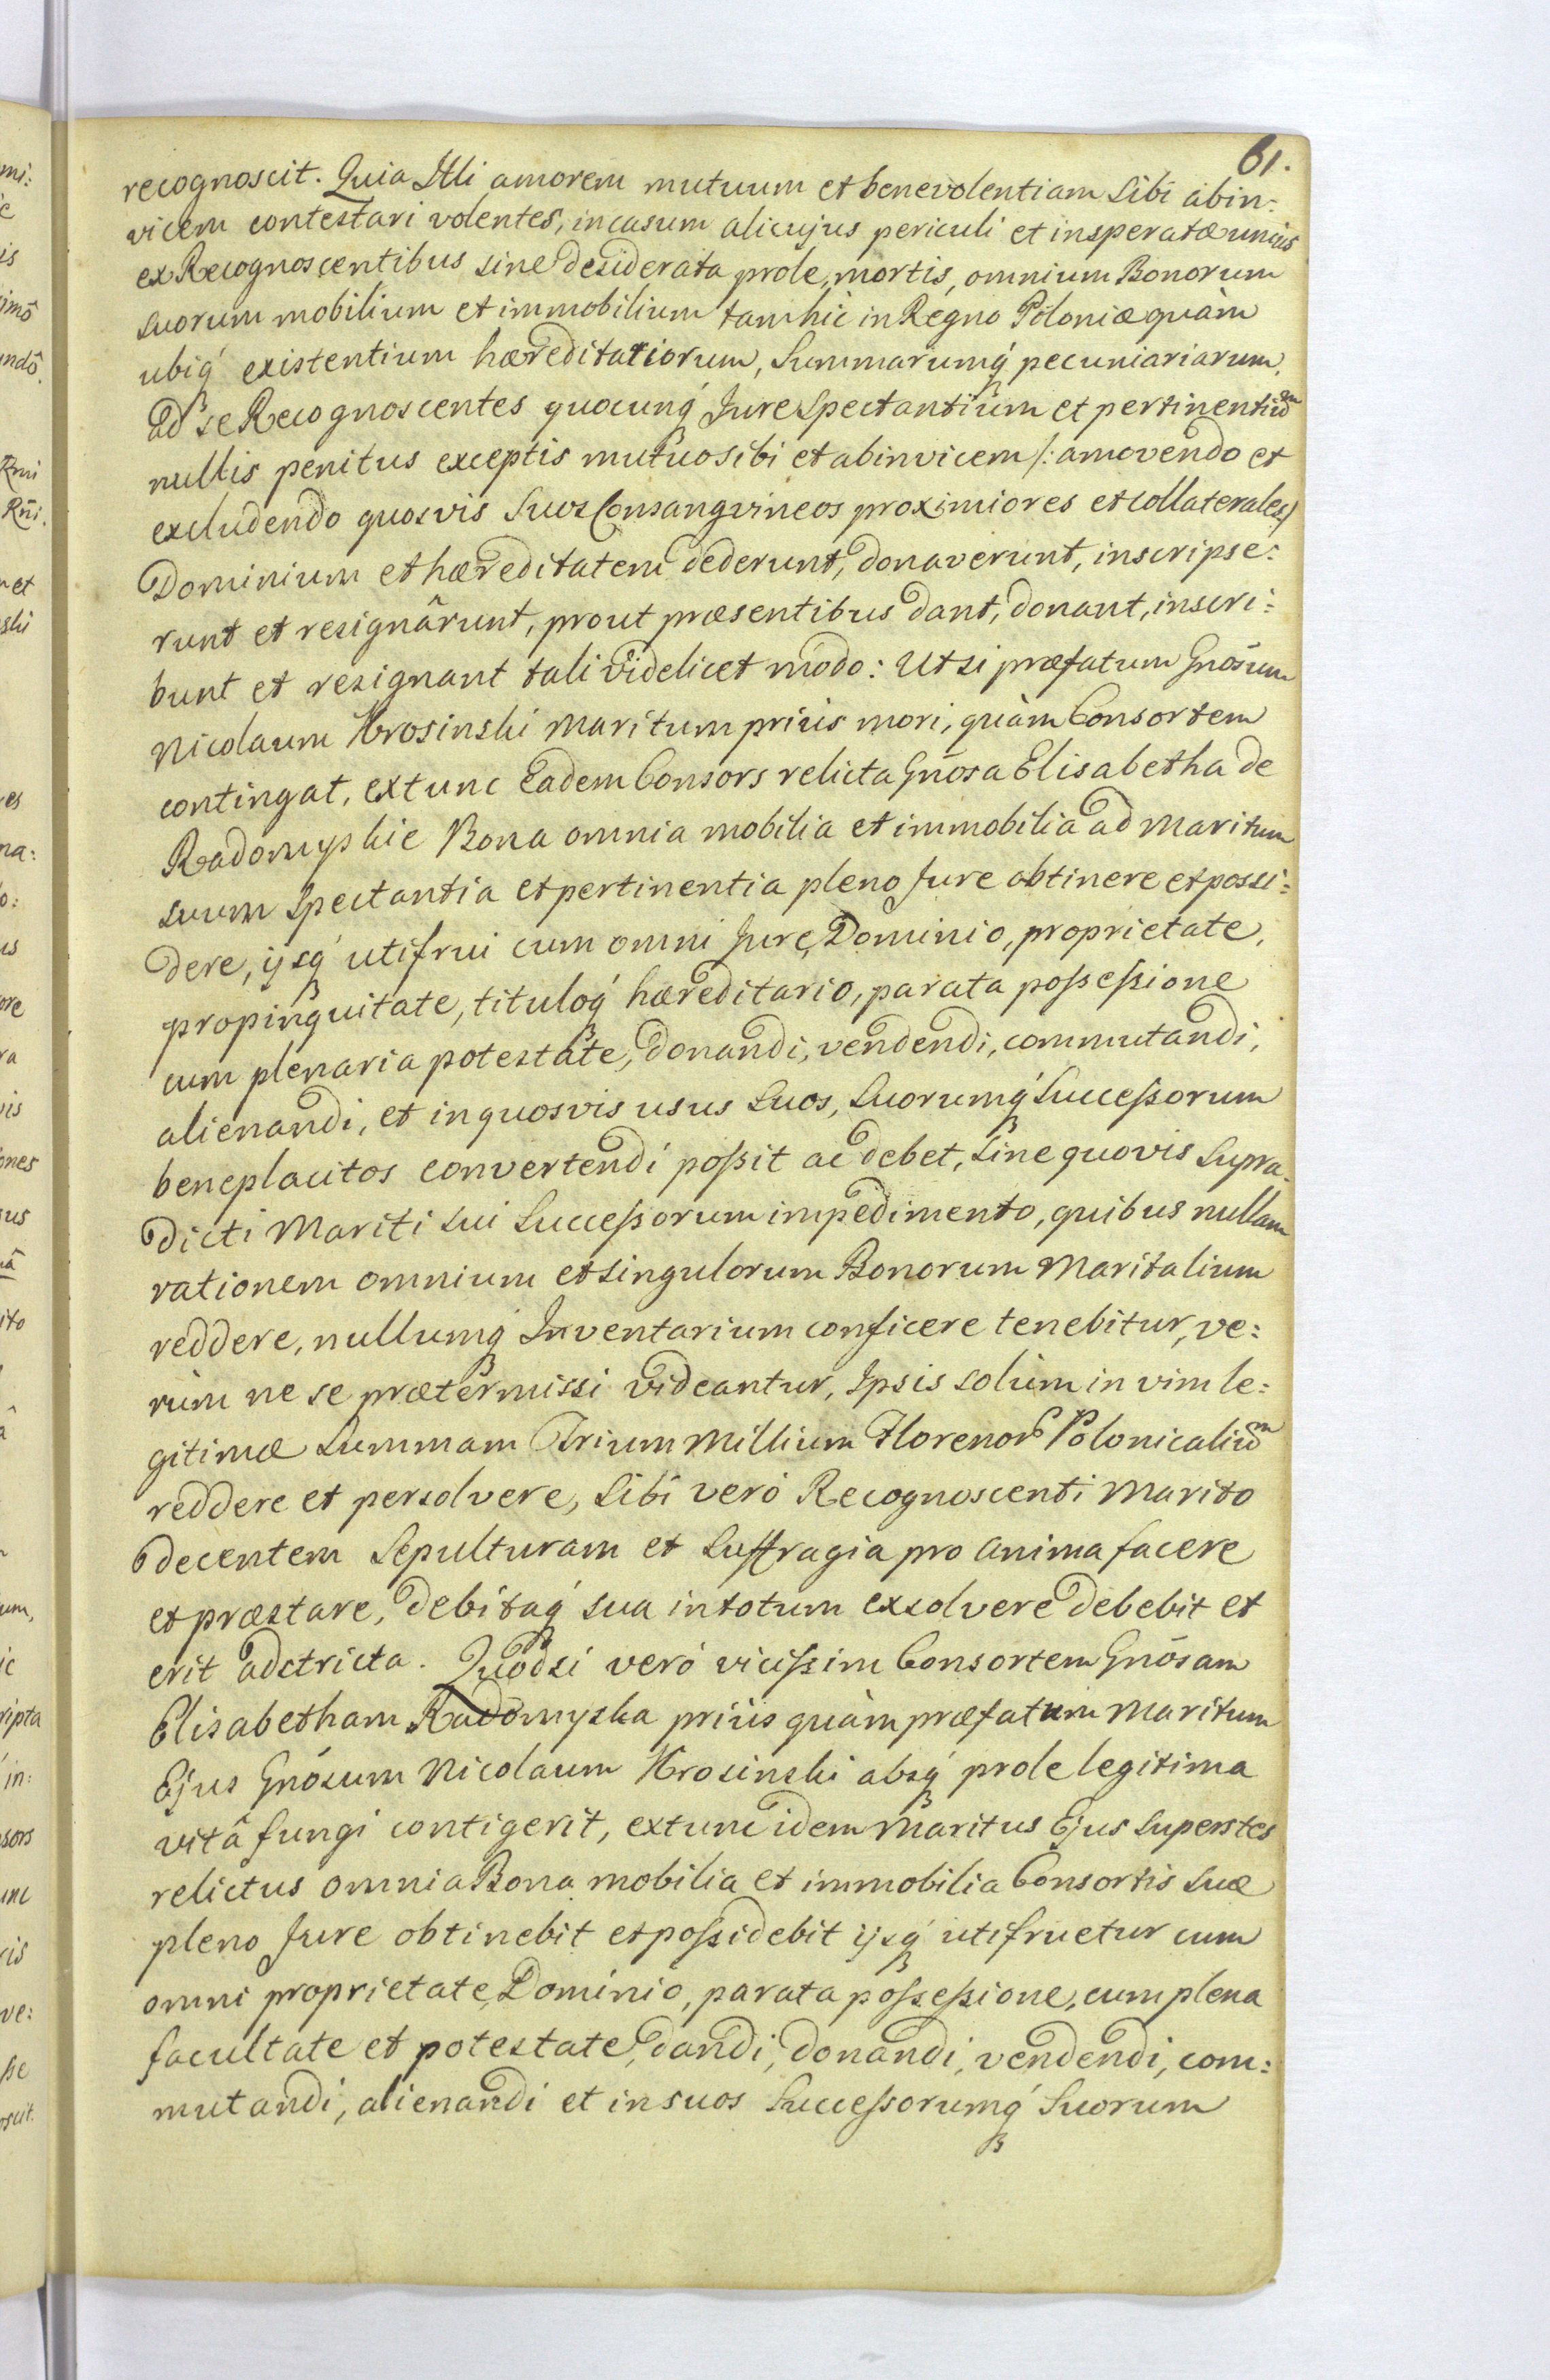 61.
recognoscit. Quia Illi amorem mutuum et benevolentiam Sibi abin:
vicem contestari volentes, in casum alicujus periculi et insperatæ unius
ex Recognoscentibus sine desiderata prole, mortis, omnium Bonorum
suorum mobilium et immobilium tam hic in Regno Poloniæ quàm
ubiq́ existentium hæreditariorum, Summarumq́ pecuniariarum,
ad se Recognoscentes quocunq́ Jure Spectantium et pertinentiū
nullis penitus exceptis mutuo sibi et abinvicem /: amovendo et
excludendo quosvis Suos Consangvineos proximiores et collaterales/
Dominium et hæreditatem dederunt, donaverunt, inscripse:
runt et resignârunt, prout præsentibus dant, donant, inscri:
bunt et resignant tali videlicet modo: Ut si præfatum Gnōsum
Nicolaum Krosinski Maritum priùs mori, quàm Consortem
contingat, extunc Eadem Consors relicta Gnōsa Elisabetha de
Radomyskie Bona omnia mobilia et immobilia ad Maritum
suum spectantia et pertinentia pleno Jure obtinere et possi:
dere, ijsq́ utifrui cum omni Jure, Dominio, proprietate,
propinquitate, tituloq́ hæreditario, parata possessione
cum plenaria potestate, donandi, vendendi, commutandi,
alienandi, et in quosvis usus Suos, Suorumq́ Successorum
beneplacitos convertendi possit ac debet, Sine quovis Supra
dicti Mariti sui Successorum impedimento, quibus nullam
rationem omnium et singulorum Bonorum Maritalium
reddere, nullumq́ Inventarium conficere tenebitur, ve:
rùm ne se prætermissi videantur, Ipsis solùm in vim le:
gitimæ Summam Trium Millium Florenor Polonicaliū
reddere et persolvere, Sibi verò Recognoscenti Marito
decentem Sepulturam et Suffragia pro Anima facere
et præstare, debitaq́ sua in totum exsolvere debebit et
erit adstricta. Quodsi verò vicissim Consortem Gnōsam
Elisabetham Radomyska priùs quàm præfatum Maritum
Ejus Gnōsum Nicolaum Krosinski absq́ prole legitima
vitâ fungi contigerit, extunc idem Maritus Ejus Superstes
relictus omnia Bona mobilia et immobilia Consortis Suæ
pleno Jure obtinebit et possidebit ijsq́ utifruetur cum
omni proprietate, Dominio, parata possessione, cum plena
facultate et potestate, dandi, donandi, vendendi, com:
mutandi, alienandi et in suos Successorumq́ Suorum